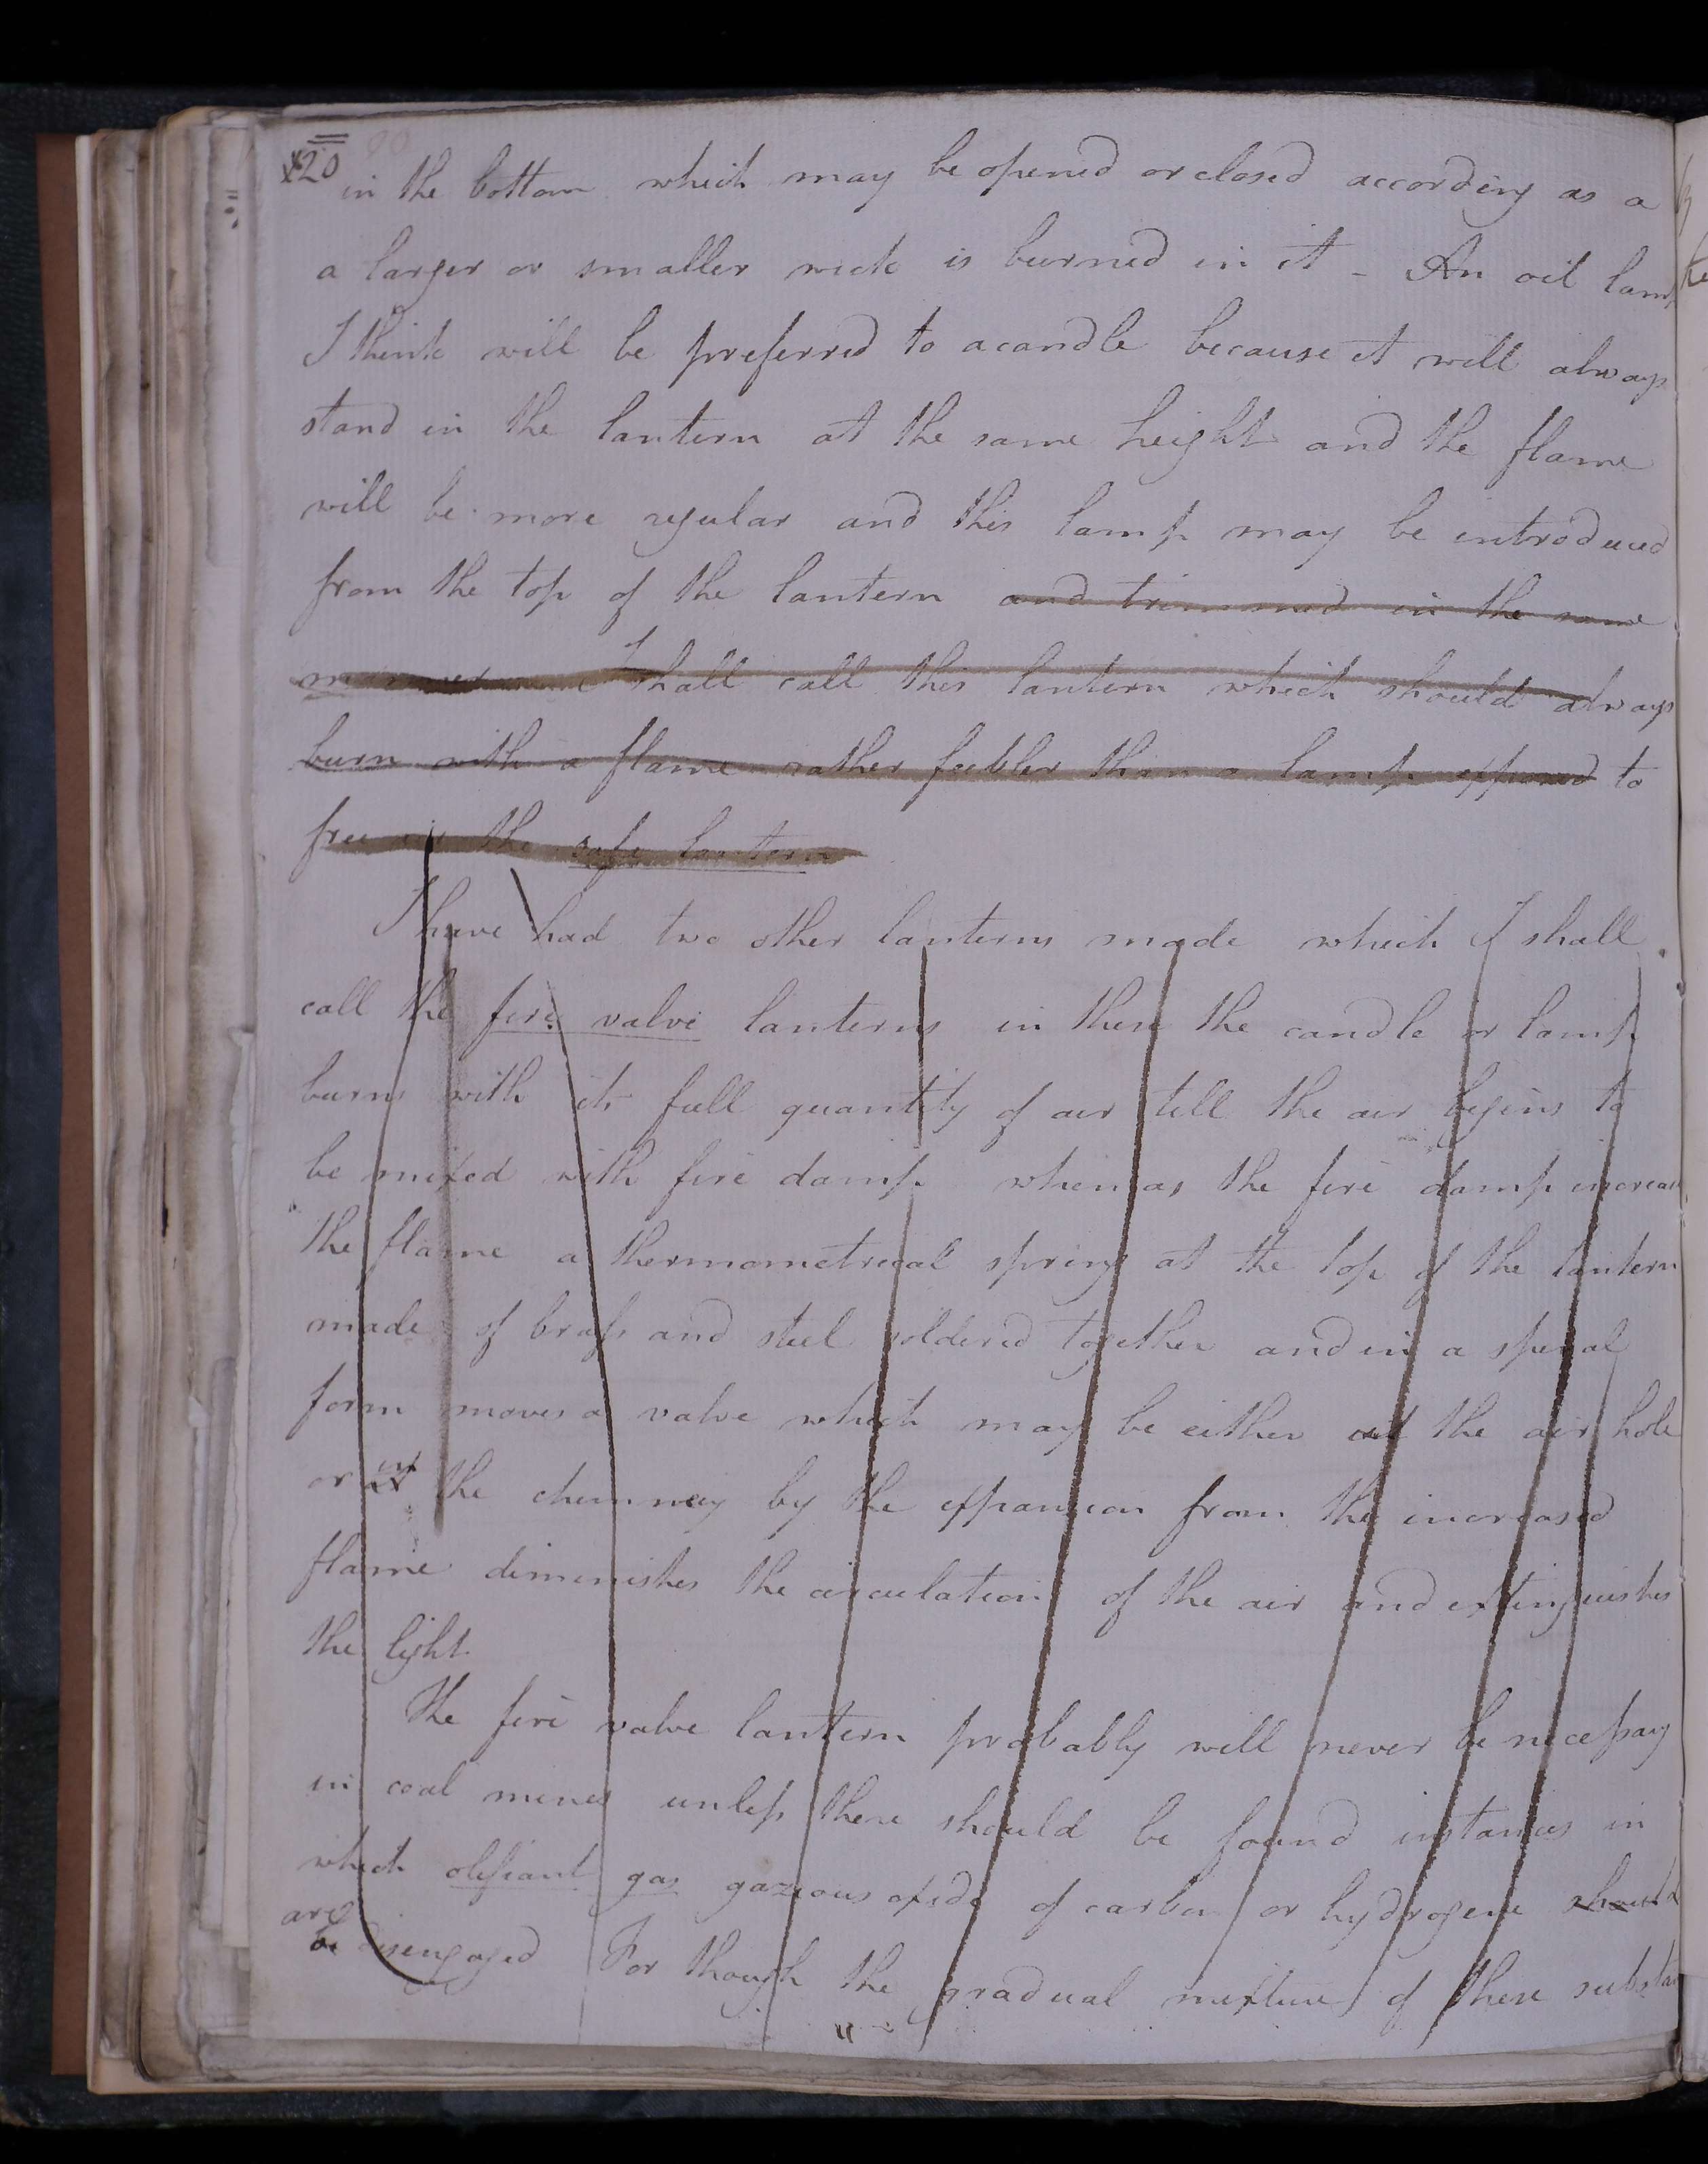 120
in the bottom which may be opened or closed according as a
a larger or smaller wick is burned in it - An oil lamp
I think will be preferred to a candle because it will always
stand in the lantern at the same height and the flame
will be more regular and this lamp may be introduced
from the top of the lantern and trimmed in the same
manner I shall call this lantern which should always
burn with a flame rather feebler than a lamp exposed to
free air the safe lantern
I have had two other lanterns made which I shall
call the fire valve lanterns in these the candle or lamp
burns with its full quantity of air till the air begins to
be mixed with fire damp when as the fire damp increases
the flame a thermometrical spring at the top of the lantern
made of brass and steel soldered together and in a spiral
form moves a valve which may be either at the air hole
or in the chimney by the expansion from the increased
flame diminishes the circulation of the air and extinguishes
the light.
The fire valve lantern probably will never be necessary
in coal mines unless there should be found instances in
which olefiant gas gazeous oxide of carbon or hydrogene should
are
be disengaged For though the gradual mixture of these substan